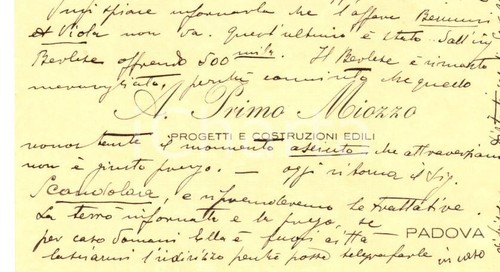 dispiace informarla che l'affare Bemmini
Viola non va. Quest'ultimo è stato dall'ing
Berlese offrendo 500 mila. Il Berlese è rimasto
meravigliato, perché convinto che questo
A. Primo Miozzo
PROGETTI E COSTRUZIONI EDILI
nonostante il momento che attraversiamo
non è giusto prezzo. — oggi ritorna il Sig.
Scandolara, e riprenderemo le trattative.
La terrò informata e la prego, se
per caso domani Ella è fuori città
PADOVA
lasciarmi l'indirizzo perché possa telegrafarle in caso